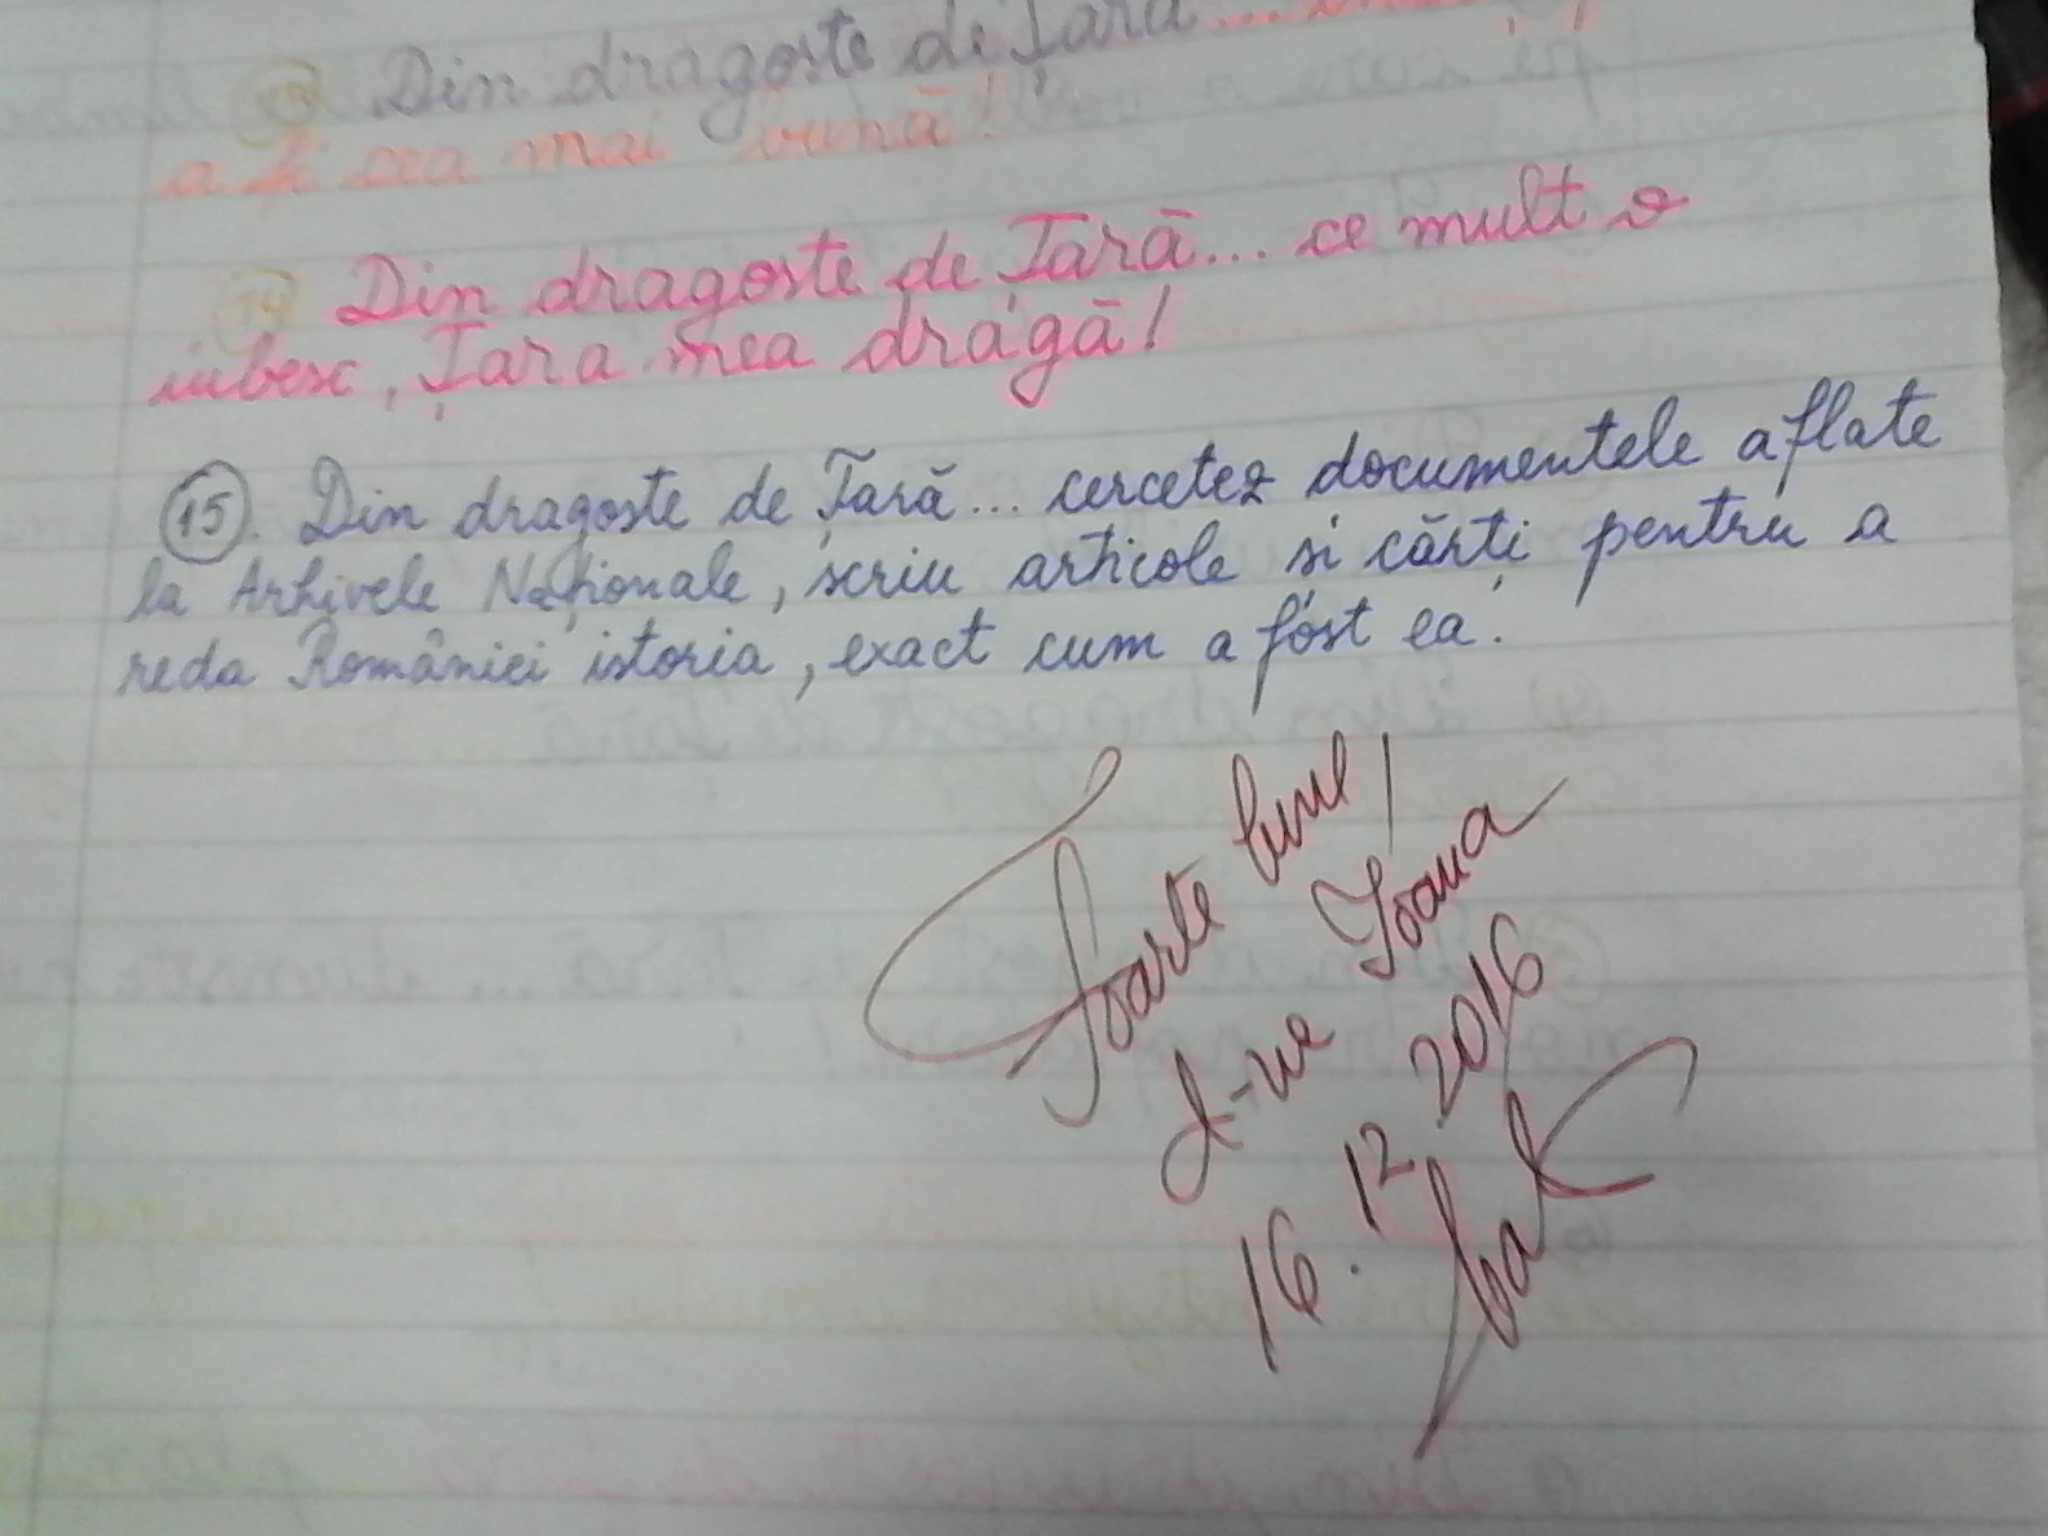 13 Din dragoste de Țară...
a fi cea mai bună!
14 Din dragoste de Țară... ce mult o
iubesc, Țara mea dragă!
15. Din dragoste de Țară... cercetez documentele aflate
la Arhivele Naționale, scriu articole și cărți pentru a
reda României istoria, exact cum a fost ea.
Foarte bine!
d-na Ioana
16.12.2016